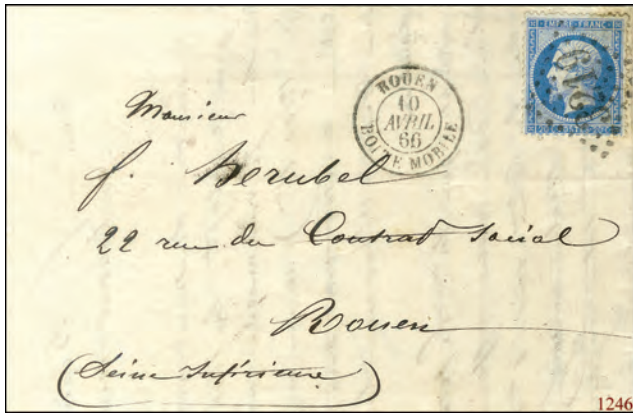 EMPIRE FRANC
219
ROUEN
10
AVRIL
66
BOITE MOBILE
Monsieur
f. Berubel
22 rue du Contrat Social
Rouen
(Seine Inférieure)
1246